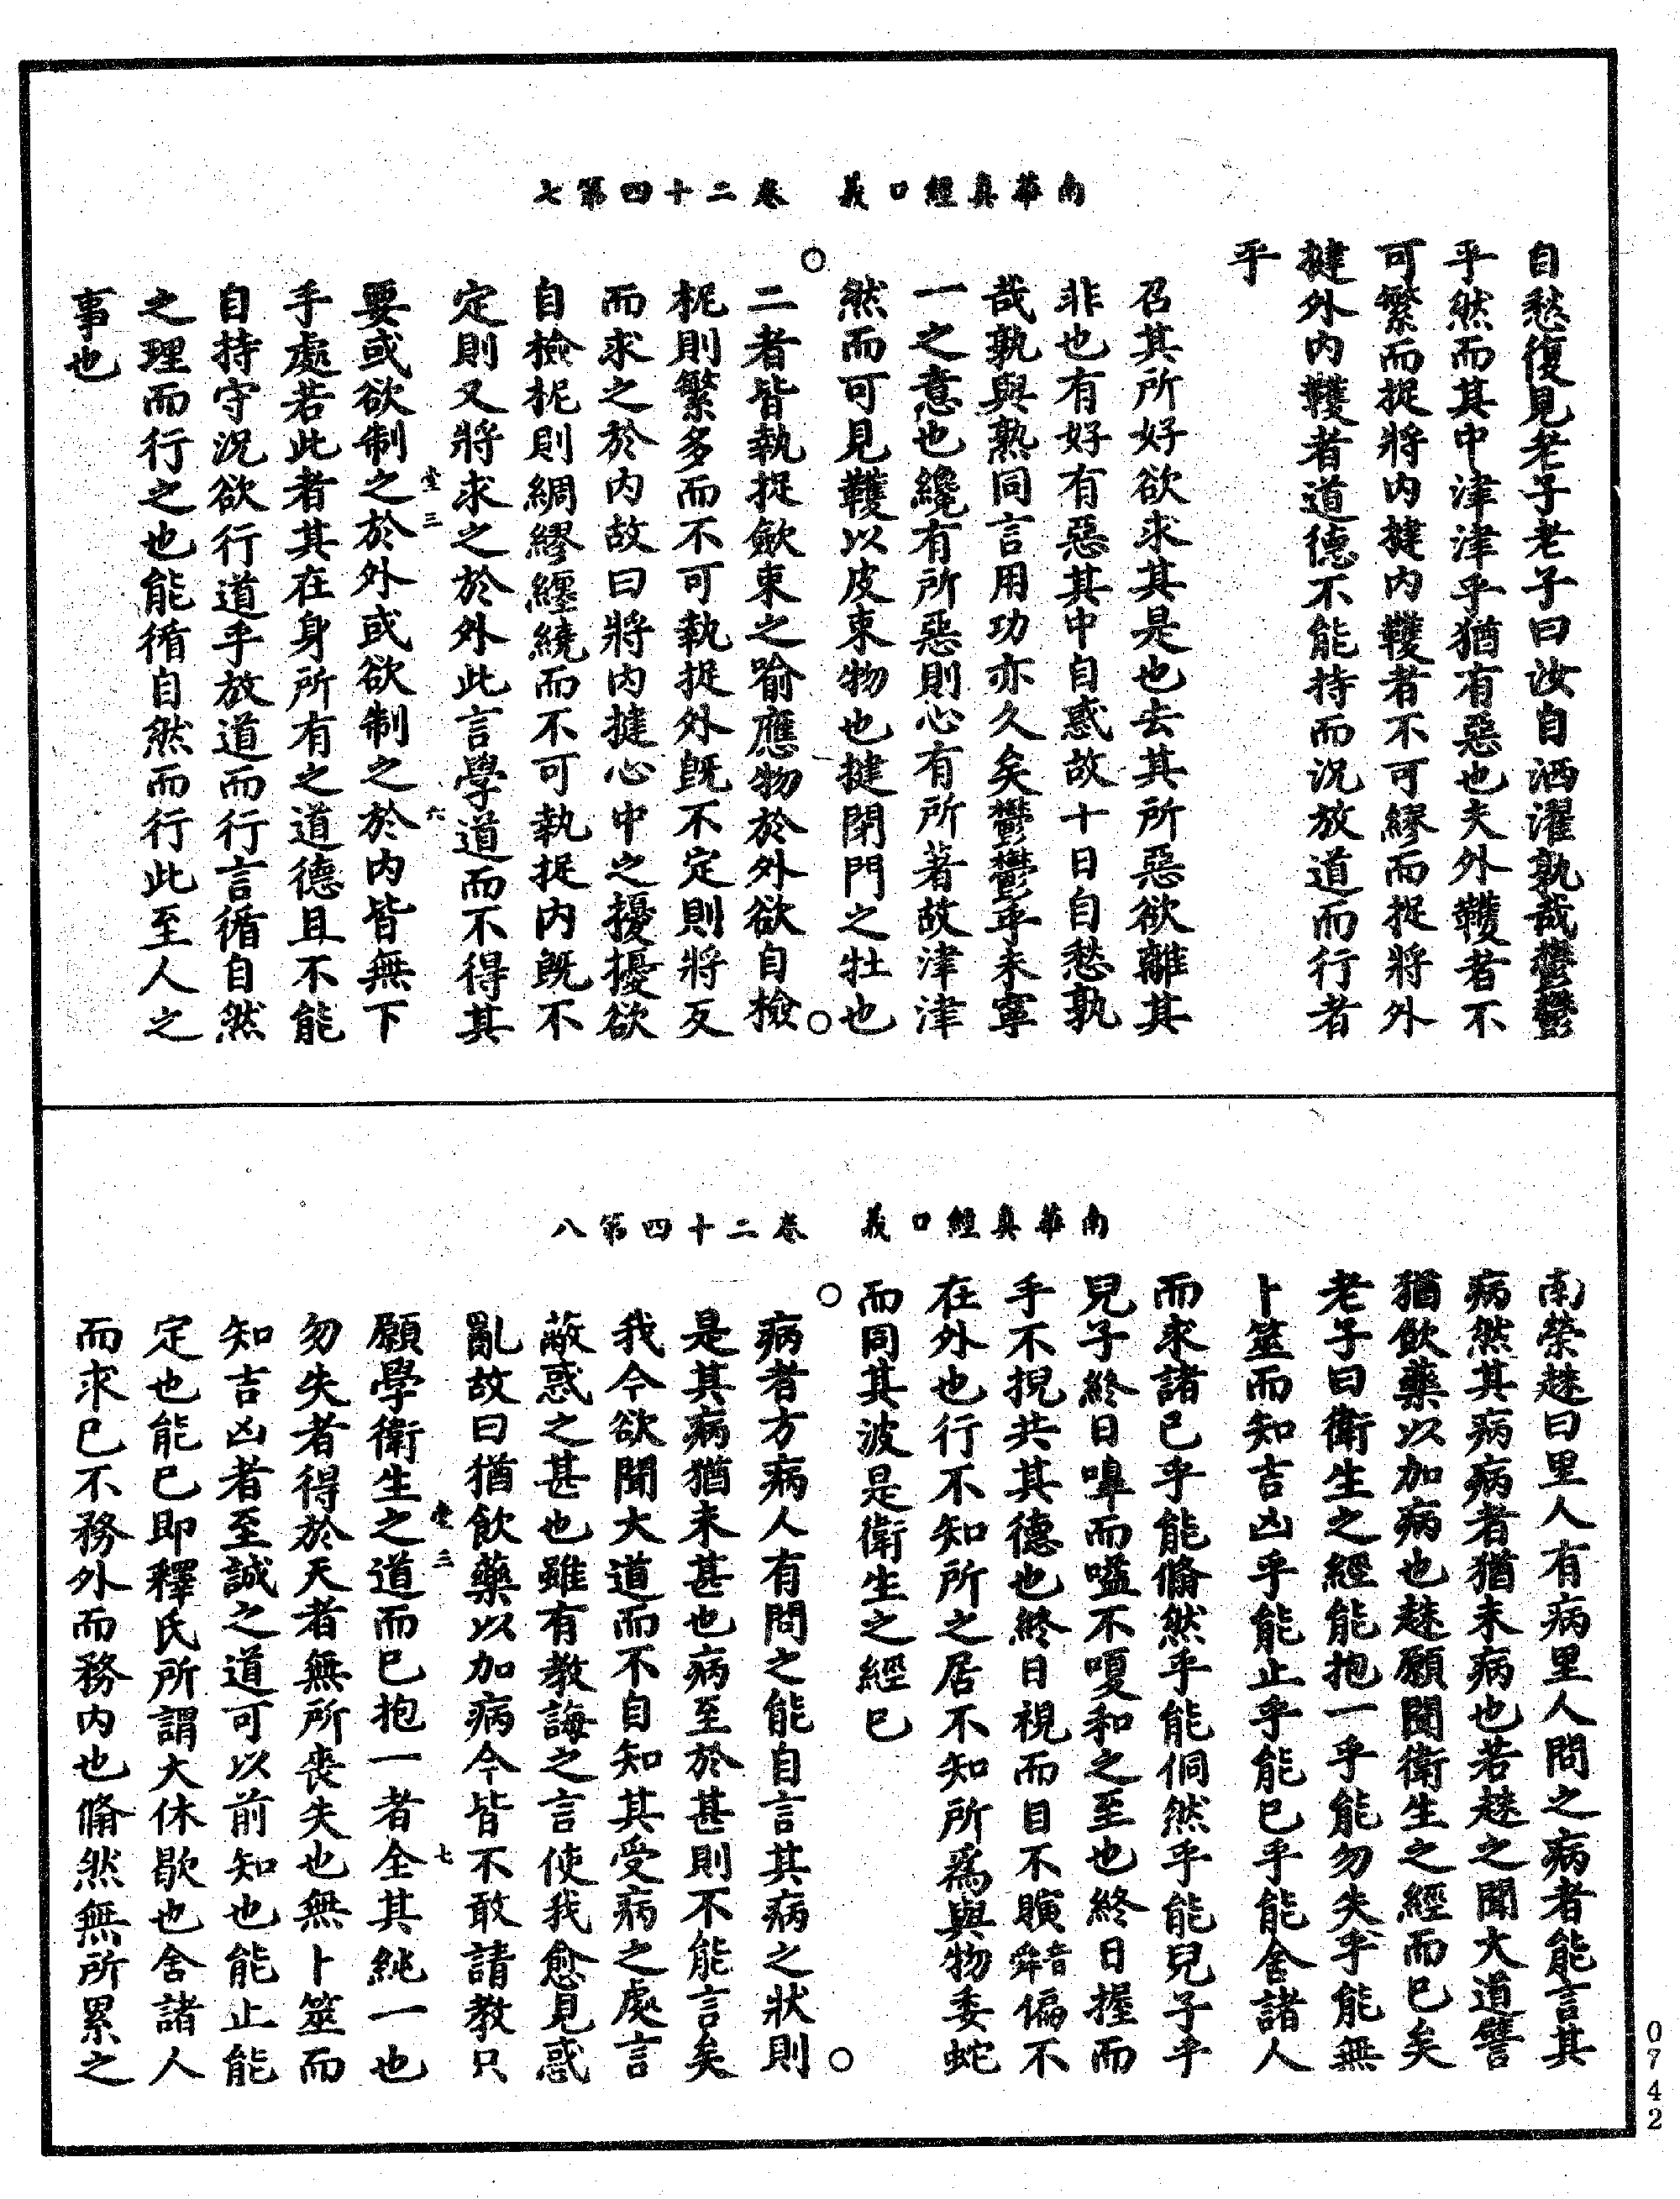 南華真經口義 卷二十四第七
自愁復見老子老子曰汝自洒濯孰哉鬱鬱
乎然而其中津津乎猶有惡也夫外韄者不
可繁而捉將內揵內韄者不可繆而捉將外
揵外內韄者道德不能持而況放道而行者
乎
召其所好欲求其是也去其所惡欲離其
非也有好有惡其中自惑故十日自愁孰
哉孰與熟同言用功亦久矣鬱鬱乎未寧
一之意也纔有所惡則心有所著故津津
然而可見韄以皮束物也揵閉門之牡也
二者皆執捉歛束之喻應物於外欲自檢
柅則繁多而不可執捉外既不定則將反
而求之於內故曰將內揵心中之擾擾欲
自檢柅則綢繆纏繞而不可執捉內既不
定則又將求之於外此言學道而不得其
堂三 六
要或欲制之於外或欲制之於內皆無下
手處若此者其在身所有之道德且不能
自持守況欲行道乎放道而行言循自然
之理而行之也能循自然而行此至人之
事也
南華真經口義 卷二十四第八
南榮趎曰里人有病里人問之病者能言其
病然其病病者猶未病也若趎之聞大道譬
猶飲藥以加病也趎願聞衛生之經而已矣
老子曰衛生之經能抱一乎能勿失乎能無
卜筮而知吉凶乎能止乎能已乎能舍諸人
而求諸己乎能翛然乎能侗然乎能兒子乎
兒子終日嘷而嗌不嗄和之至也終日握而
手不掜共其德也終日視而目不瞚偏不
在外也行不知所之居不知所為與物委蛇
而同其波是衛生之經已
病者方病人有問之能自言其病之狀則
是其病猶未甚也病至於甚則不能言矣
我今欲聞大道而不自知其受病之處言
蔽惑之甚也雖有教誨之言使我愈見惑
亂故曰猶飲藥以加病今皆不敢請教只
堂三 七
願學衛生之道而已抱一者全其純一也
勿失者得於天者無所喪失也無卜筮而
知吉凶者至誠之道可以前知也能止能
定也能已即釋氏所謂大休歇也舍諸人
而求己不務外而務內也翛然無所累之
0742